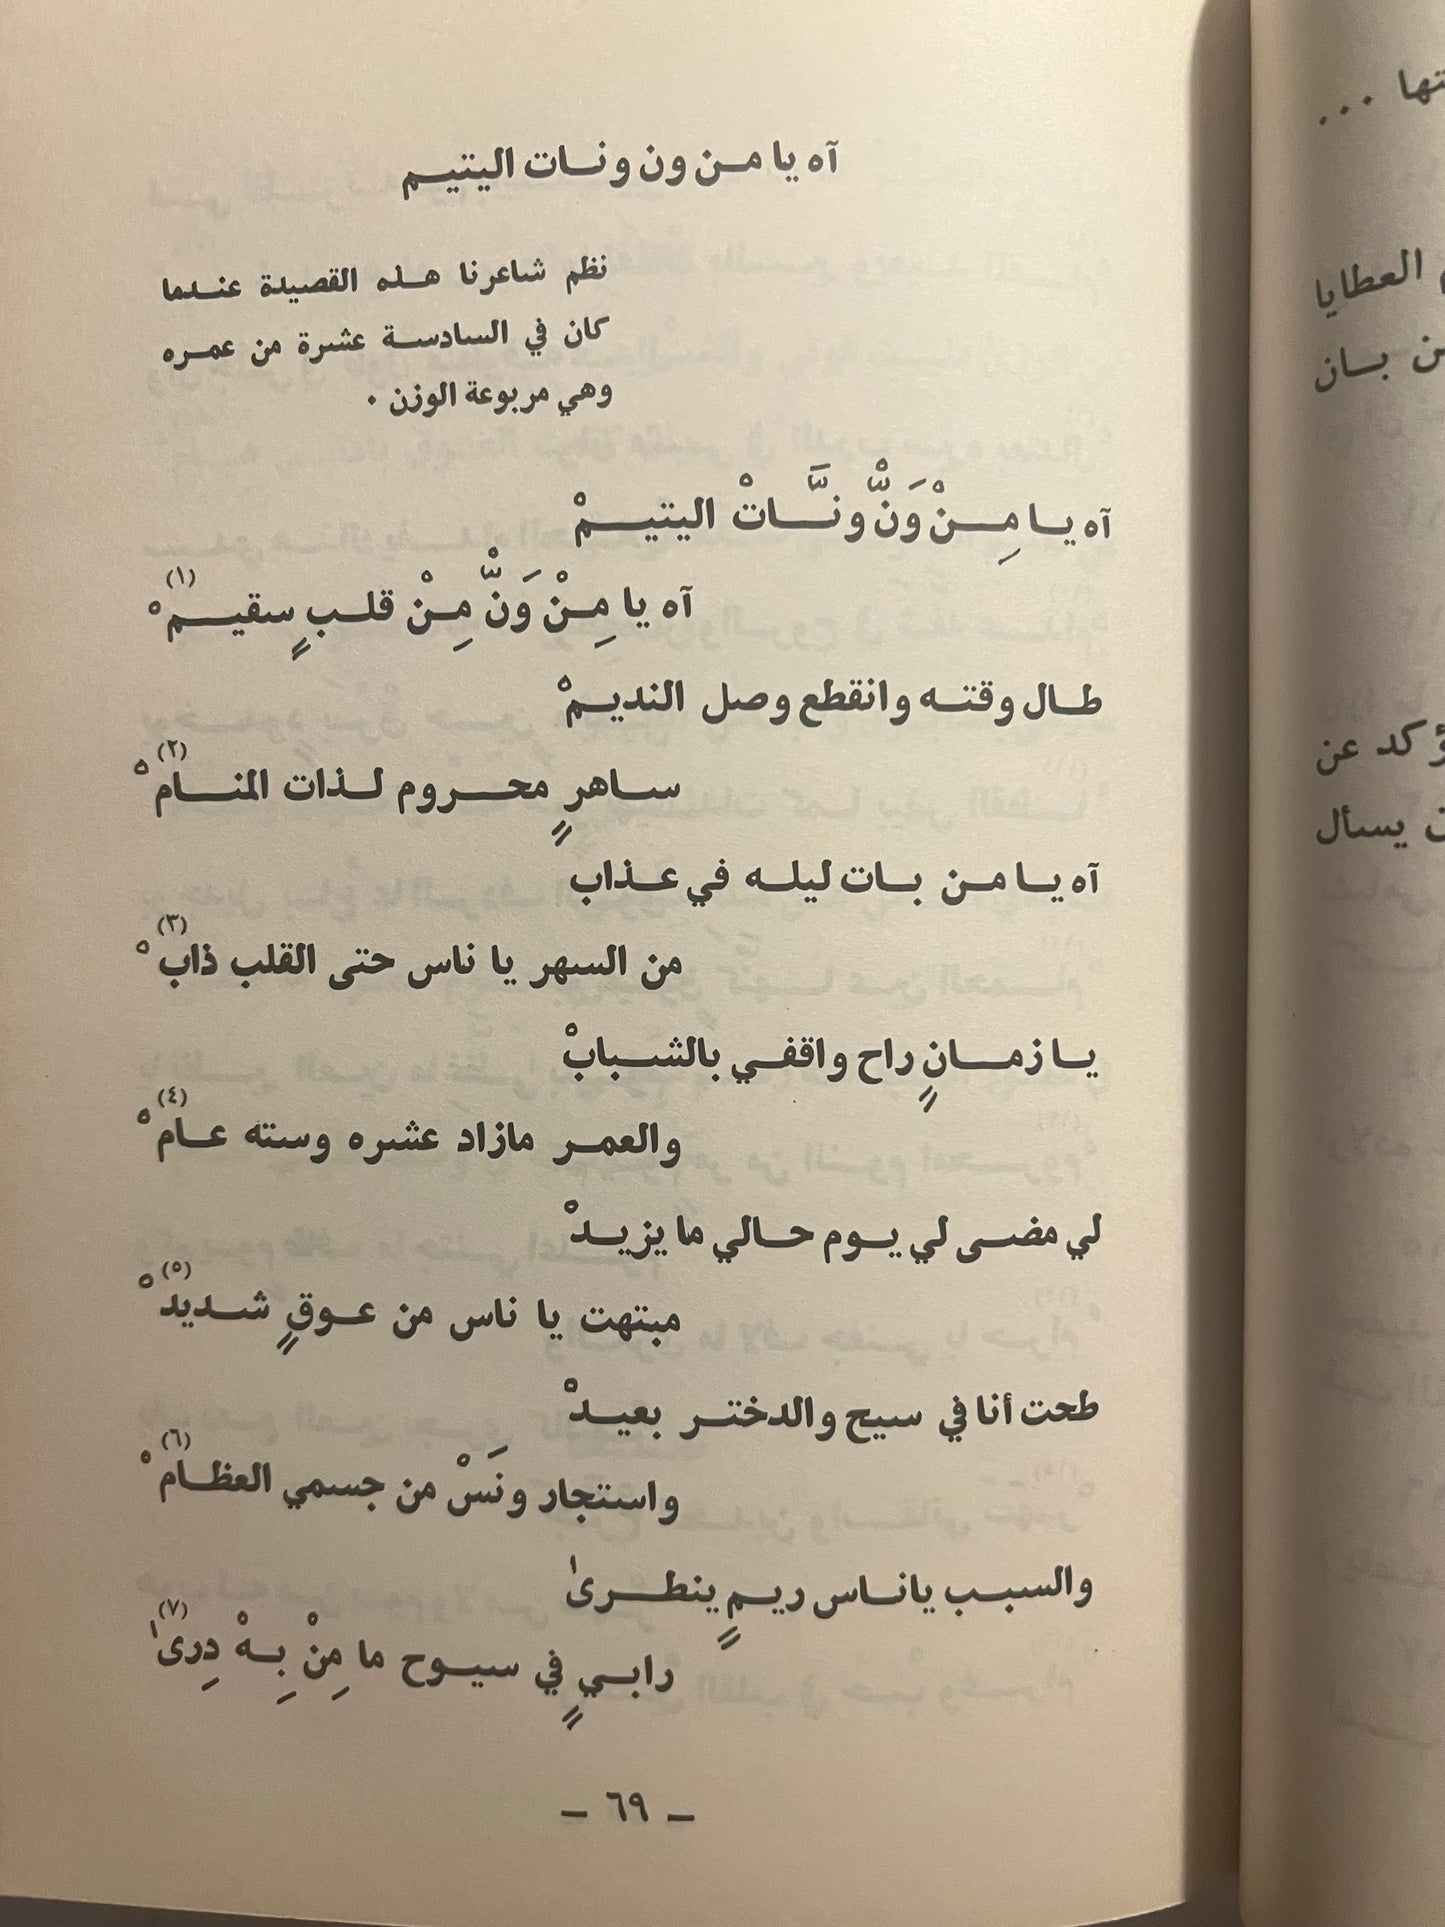 آه يا من ون ونات اليتيم
نظم شاعرنا هذه القصيدة عندما
كان في السادسة عشرة من عمره
وهي مربوعة الوزن .
آه يا مِنْ وَنّْ ونَّاتْ اليتيمْ
آه يا مِنْ وَنّْ مِنْ قلبٍ سقيمْ (١)
طال وقته وانقطع وصل النديمْ
ساهرٍ محروم لذات المنامْ (٢)
آه يا من بات ليله في عذاب
من السهر يا ناس حتى القلب ذابْ (٣)
يا زمانٍ راح واقفي بالشبابْ
والعمر مازاد عشره وسته عامْ (٤)
لي مضى لي يوم حالي ما يزيدْ
مبتهت يا ناس من عوقٍ شديدْ (٥)
طحت أنا في سيح والدختر بعيدْ
واستجار ونَسْ من جسمي العظامْ (٦)
والسبب ياناس ريمٍ ينطرىٰ
رابيٍ في سيوح ما مِنْ بِهْ دِرىٰ (٧)
ـ ٦٩ ـ
العطايا
بان
عن
يسأل